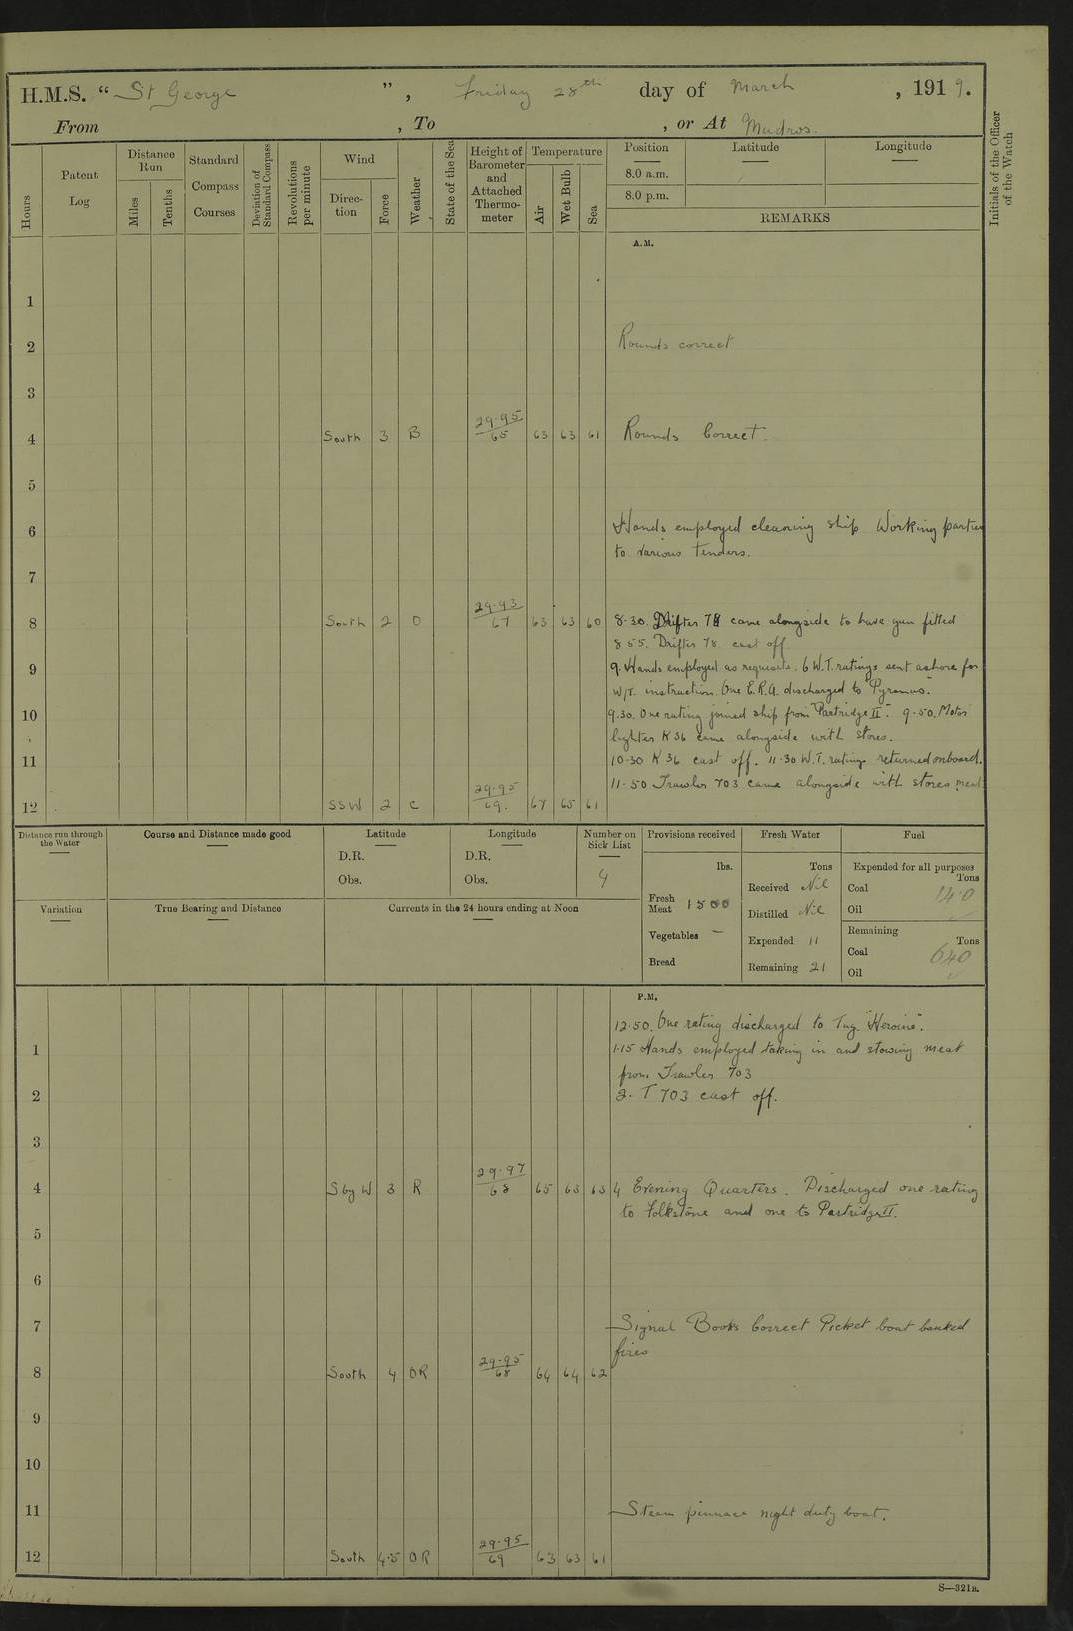 H.M.S. “ St George ”, Friday 28th day of March , 1919.
From , To , or At Mudros.
Hours
Patent Log
Distance Run
Miles
Tenths
Standard Compass Courses
Deviation of Standard Compass
Revolutions per minute
Wind
Direction
Force
Weather
State of the Sea
Height of Barometer and Attached Thermometer
Temperature
Air
Wet Bulb
Sea
Position
Latitude
Longitude
8.0 a.m.
8.0 p.m.
REMARKS
Initials of the Officer of the Watch
A.M.
1
2 Rounds correct
3
4 South 3 B 29.95 65 63 63 61 Rounds Correct.
5
6 Hands employed cleaning ship Working parties
to various Tenders.
7
8 South 2 O 29.93 67 63 63 60 8.30. Drifter 78 came alongside to have gun fitted
8 55. Drifter 78 cast off
9 9. Hands employed as requisite. 6 W.T. ratings sent ashore for
W/T. instruction. One E.R.A. discharged to "Pyramus".
10 9.30. One rating joined ship from "Partridge II". 9.50. Motor
lighter K 36 came alongside with stores.
11 10.30 K 36 cast off. 11.30 W.T. ratings returned onboard.
11.50 Trawler 703 came alongside with stores meat
12 SSW 2 C 29.95 69. 67 65 61
Distance run through the Water
Course and Distance made good
Latitude
D.R.
Obs.
Longitude
D.R.
Obs.
Number on Sick List
4
Provisions received
lbs.
Fresh Meat 1500
Vegetables —
Bread
Fresh Water
Tons
Received Nil
Distilled Nil
Expended 11
Remaining 21
Fuel
Expended for all purposes
Tons
Coal 14.0
Oil
Remaining
Tons
Coal 640
Oil
Variation
True Bearing and Distance
Currents in the 24 hours ending at Noon
P.M.
12.50. One rating discharged to Tug "Heroine".
1 1.15 Hands employed taking in and stowing meat
from Trawler 703
2 2. T 703 cast off.
3
4 S by W 3 R 29.97 68 65 63 63 4 Evening Quarters. Discharged one rating
to Folkstone and one to Partridge II.
5
6
7 Signal Books Correct Picket boat banked
fires
8 South 4 OR 29.95 68 64 64 62
9
10
11 Steam pinnace night duty boat.
12 South 4.5 OR 29.95 69 63 63 61
S—321B.